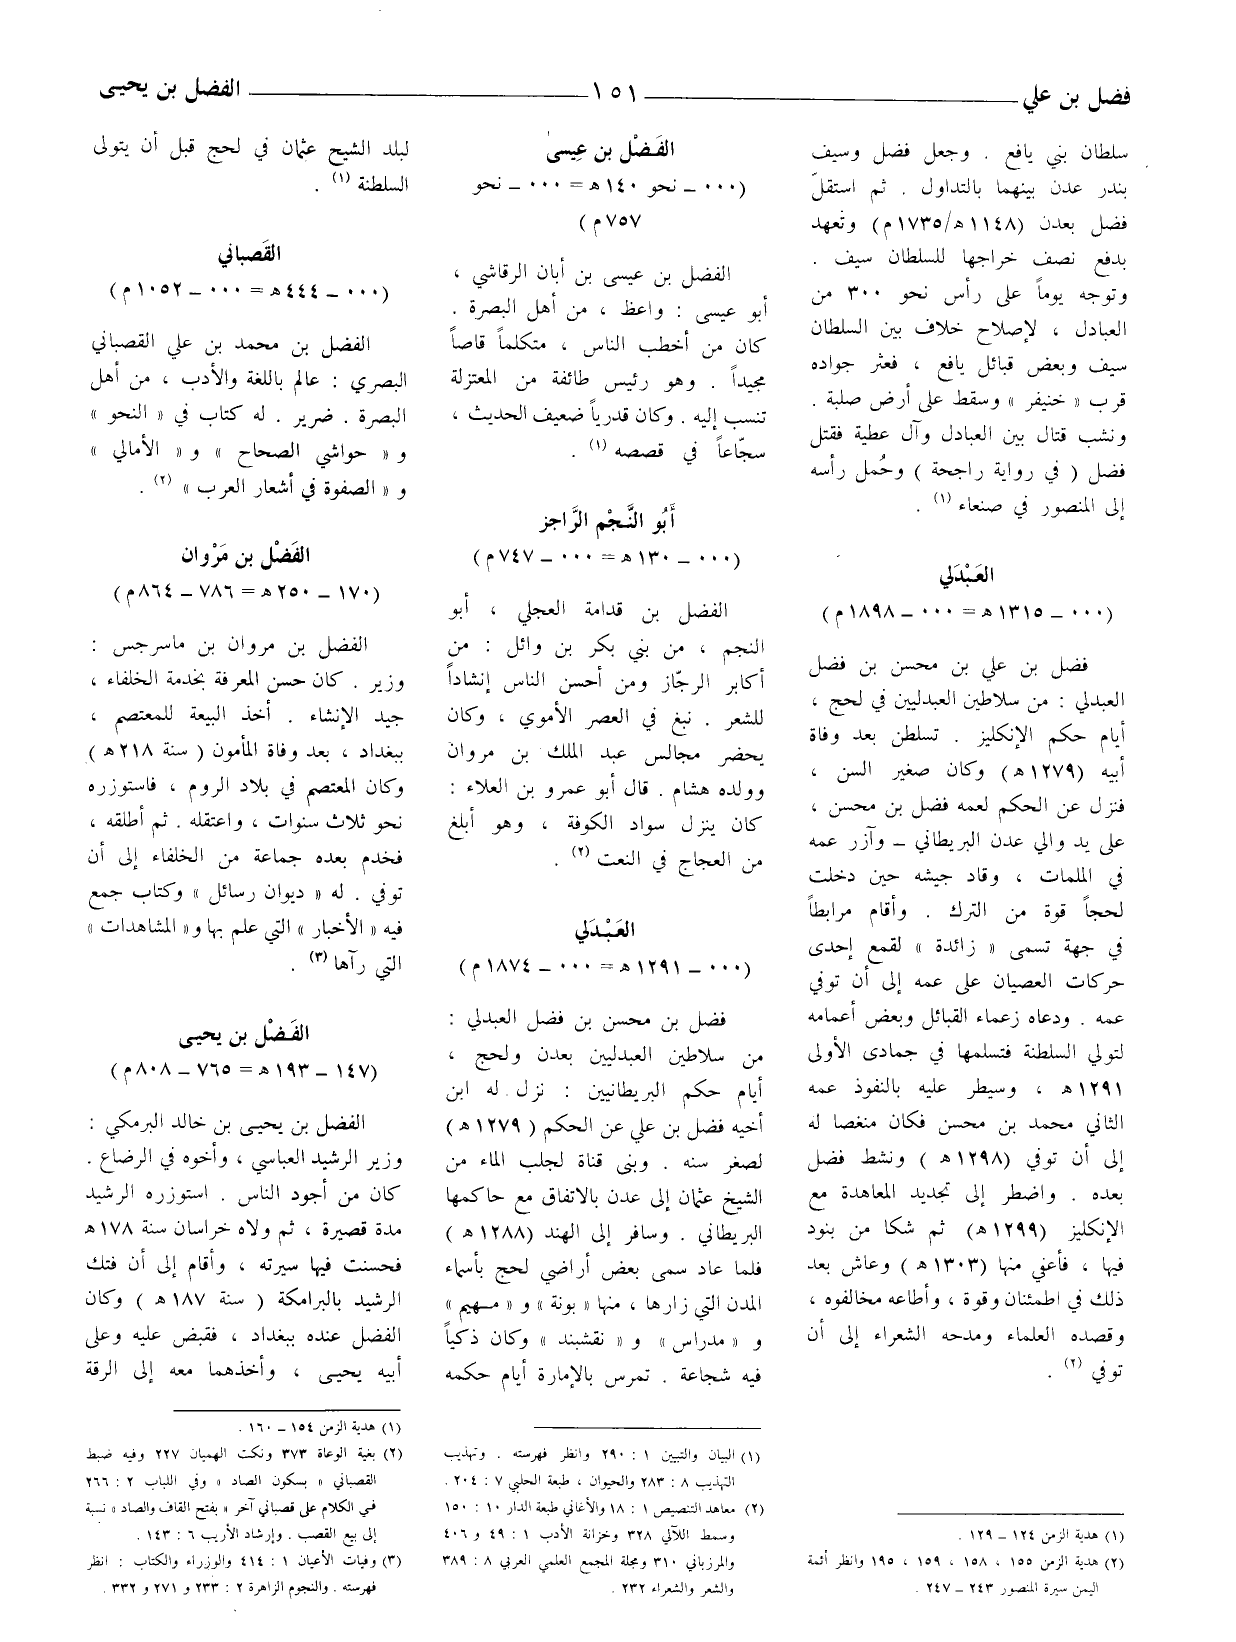 فضل بن علي ١٥١ الفضل بن يحيى
سلطان بني يافع . وجعل فضل وسيف
بندر عدن بينهما بالتداول . ثم استقلّ
فضل بعدن (١١٤٨هـ/١٧٣٥م) وتعهد
بدفع نصف خراجها للسلطان سيف .
وتوجه يوماً على رأس نحو ٣٠٠ من
العبادل ، لإصلاح خلاف بين السلطان
سيف وبعض قبائل يافع ، فعثر جواده
قرب « خنيفر » وسقط على أرض صلبة .
ونشب قتال بين العبادل وآل عطية فقتل
فضل ( في رواية راجحة ) وحُمل رأسه
إلى المنصور في صنعاء (١) .
العَبْدَلي
(٠٠٠ ــ ١٣١٥هـ = ٠٠٠ ــ ١٨٩٨م)
فضل بن علي بن محسن بن فضل
العبدلي : من سلاطين العبدليين في لحج ،
أيام حكم الإنكليز . تسلطن بعد وفاة
أبيه (١٢٧٩هـ) وكان صغير السن ،
فنزل عن الحكم لعمه فضل بن محسن ،
على يد والي عدن البريطاني ــ وآزر عمه
في الملمات ، وقاد جيشه حين دخلت
لحجاً قوة من الترك . وأقام مرابطاً
في جهة تسمى « زائدة » لقمع إحدى
حركات العصيان على عمه إلى أن توفي
عمه . ودعاه زعماء القبائل وبعض أعمامه
لتولي السلطنة فتسلمها في جمادى الأولى
١٢٩١هـ ، وسيطر عليه بالنفوذ عمه
الثاني محمد بن محسن فكان منغصا له
إلى أن توفي (١٢٩٨هـ ) ونشط فضل
بعده . واضطر إلى تجديد المعاهدة مع
الإنكليز (١٢٩٩هـ) ثم شكا من بنود
فيها ، فأعفي منها (١٣٠٣هـ ) وعاش بعد
ذلك في اطمئنان وقوة ، وأطاعه مخالفوه ،
وقصده العلماء ومدحه الشعراء إلى أن
توفي (٢) .
(١) هدية الزمن ١٢٤ ــ ١٢٩ .
(٢) هدية الزمن ١٥٥ ، ١٥٨ ، ١٥٩ ، ١٩٥ وانظر أئمة
اليمن سيرة المنصور ٢٤٣ ــ ٢٤٧ .
الفَضْل بن عِيسى
(٠٠٠ ــ نحو ١٤٠هـ = ٠٠٠ ــ نحو
٧٥٧م)
الفضل بن عيسى بن أبان الرقاشي ،
أبو عيسى : واعظ ، من أهل البصرة .
كان من أخطب الناس ، متكلماً قاصاً
مجيداً . وهو رئيس طائفة من المعتزلة
تنسب إليه . وكان قدرياً ضعيف الحديث ،
سجّاعاً في قصصه (١) .
أَبُو النَّجْم الرَّاجز
(٠٠٠ ــ ١٣٠هـ = ٠٠٠ ــ ٧٤٧م)
الفضل بن قدامة العجلي ، أبو
النجم ، من بني بكر بن وائل : من
أكابر الرجّاز ومن أحسن الناس إنشاداً
للشعر . نبغ في العصر الأموي ، وكان
يحضر مجالس عبد الملك بن مروان
وولده هشام . قال أبو عمرو بن العلاء :
كان ينزل سواد الكوفة ، وهو أبلغ
من العجاج في النعت (٢) .
العَبْدَلي
(٠٠٠ ــ ١٢٩١هـ = ٠٠٠ ــ ١٨٧٤م)
فضل بن محسن بن فضل العبدلي :
من سلاطين العبدليين بعدن ولحج ،
أيام حكم البريطانيين : نزل له ابن
أخيه فضل بن علي عن الحكم (١٢٧٩هـ)
لصغر سنه . وبنى قناة لجلب الماء من
الشيخ عثمان إلى عدن بالاتفاق مع حاكمها
البريطاني . وسافر إلى الهند (١٢٨٨هـ )
فلما عاد سمى بعض أراضي لحج بأسماء
المدن التي زارها ، منها « بونة » و « مهيم »
و « مدراس » و « نقشبند » وكان ذكياً
فيه شجاعة . تمرس بالإمارة أيام حكمه
(١) البيان والتبيين ١ : ٢٩٠ وانظر فهرسته . وتهذيب
التهذيب ٨ : ٢٨٣ والحيوان ، طبعة الحلبي ٧ : ٢٠٤ .
(٢) معاهد التنصيص ١ : ١٨ والأغاني طبعة الدار ١٠ : ١٥٠
وسمط اللآلي ٣٢٨ وخزانة الأدب ١ : ٤٩ و ٤٠٦
والمرزباني ٣١٠ ومجلة المجمع العلمي العربي ٨ : ٣٨٩
والشعر والشعراء ٢٣٢ .
لبلد الشيخ عثمان في لحج قبل أن يتولى
السلطنة (١) .
القَصباني
(٠٠٠ ــ ٤٤٤هـ = ٠٠٠ ــ ١٠٥٢م)
الفضل بن محمد بن علي القصباني
البصري : عالم باللغة والأدب ، من أهل
البصرة . ضرير . له كتاب في « النحو »
و « حواشي الصحاح » و « الأمالي »
و « الصفوة في أشعار العرب » (٢) .
الفَضْل بن مَرْوان
(١٧٠ ــ ٢٥٠هـ = ٧٨٦ ــ ٨٦٤م)
الفضل بن مروان بن ماسرجس :
وزير . كان حسن المعرفة بخدمة الخلفاء ،
جيد الإنشاء . أخذ البيعة للمعتصم ،
ببغداد ، بعد وفاة المأمون ( سنة ٢١٨هـ )
وكان المعتصم في بلاد الروم ، فاستوزره
نحو ثلاث سنوات ، واعتقله . ثم أطلقه ،
فخدم بعده جماعة من الخلفاء إلى أن
توفي . له « ديوان رسائل » وكتاب جمع
فيه « الأخبار » التي علم بها و « المشاهدات »
التي رآها (٣) .
الفَضْل بن يحيى
(١٤٧ ــ ١٩٣هـ = ٧٦٥ ــ ٨٠٨م)
الفضل بن يحيى بن خالد البرمكي :
وزير الرشيد العباسي ، وأخوه في الرضاع .
كان من أجود الناس . استوزره الرشيد
مدة قصيرة ، ثم ولاه خراسان سنة ١٧٨هـ
فحسنت فيها سيرته ، وأقام إلى أن فتك
الرشيد بالبرامكة ( سنة ١٨٧هـ ) وكان
الفضل عنده ببغداد ، فقبض عليه وعلى
أبيه يحيى ، وأخذهما معه إلى الرقة
(١) هدية الزمن ١٥٤ ــ ١٦٠ .
(٢) بغية الوعاة ٣٧٣ ونكت الهميان ٢٢٧ وفيه ضبط
القصباني « بسكون الصاد » وفي اللباب ٢ : ٢٦٦
في الكلام على قصباني آخر « بفتح القاف والصاد » نسبة
إلى بيع القصب . وإرشاد الأريب ٦ : ١٤٣ .
(٣) وفيات الأعيان ١ : ٤١٤ والوزراء والكتاب : انظر
فهرسته . والنجوم الزاهرة ٢ : ٢٣٣ و ٢٧١ و ٣٣٢ .